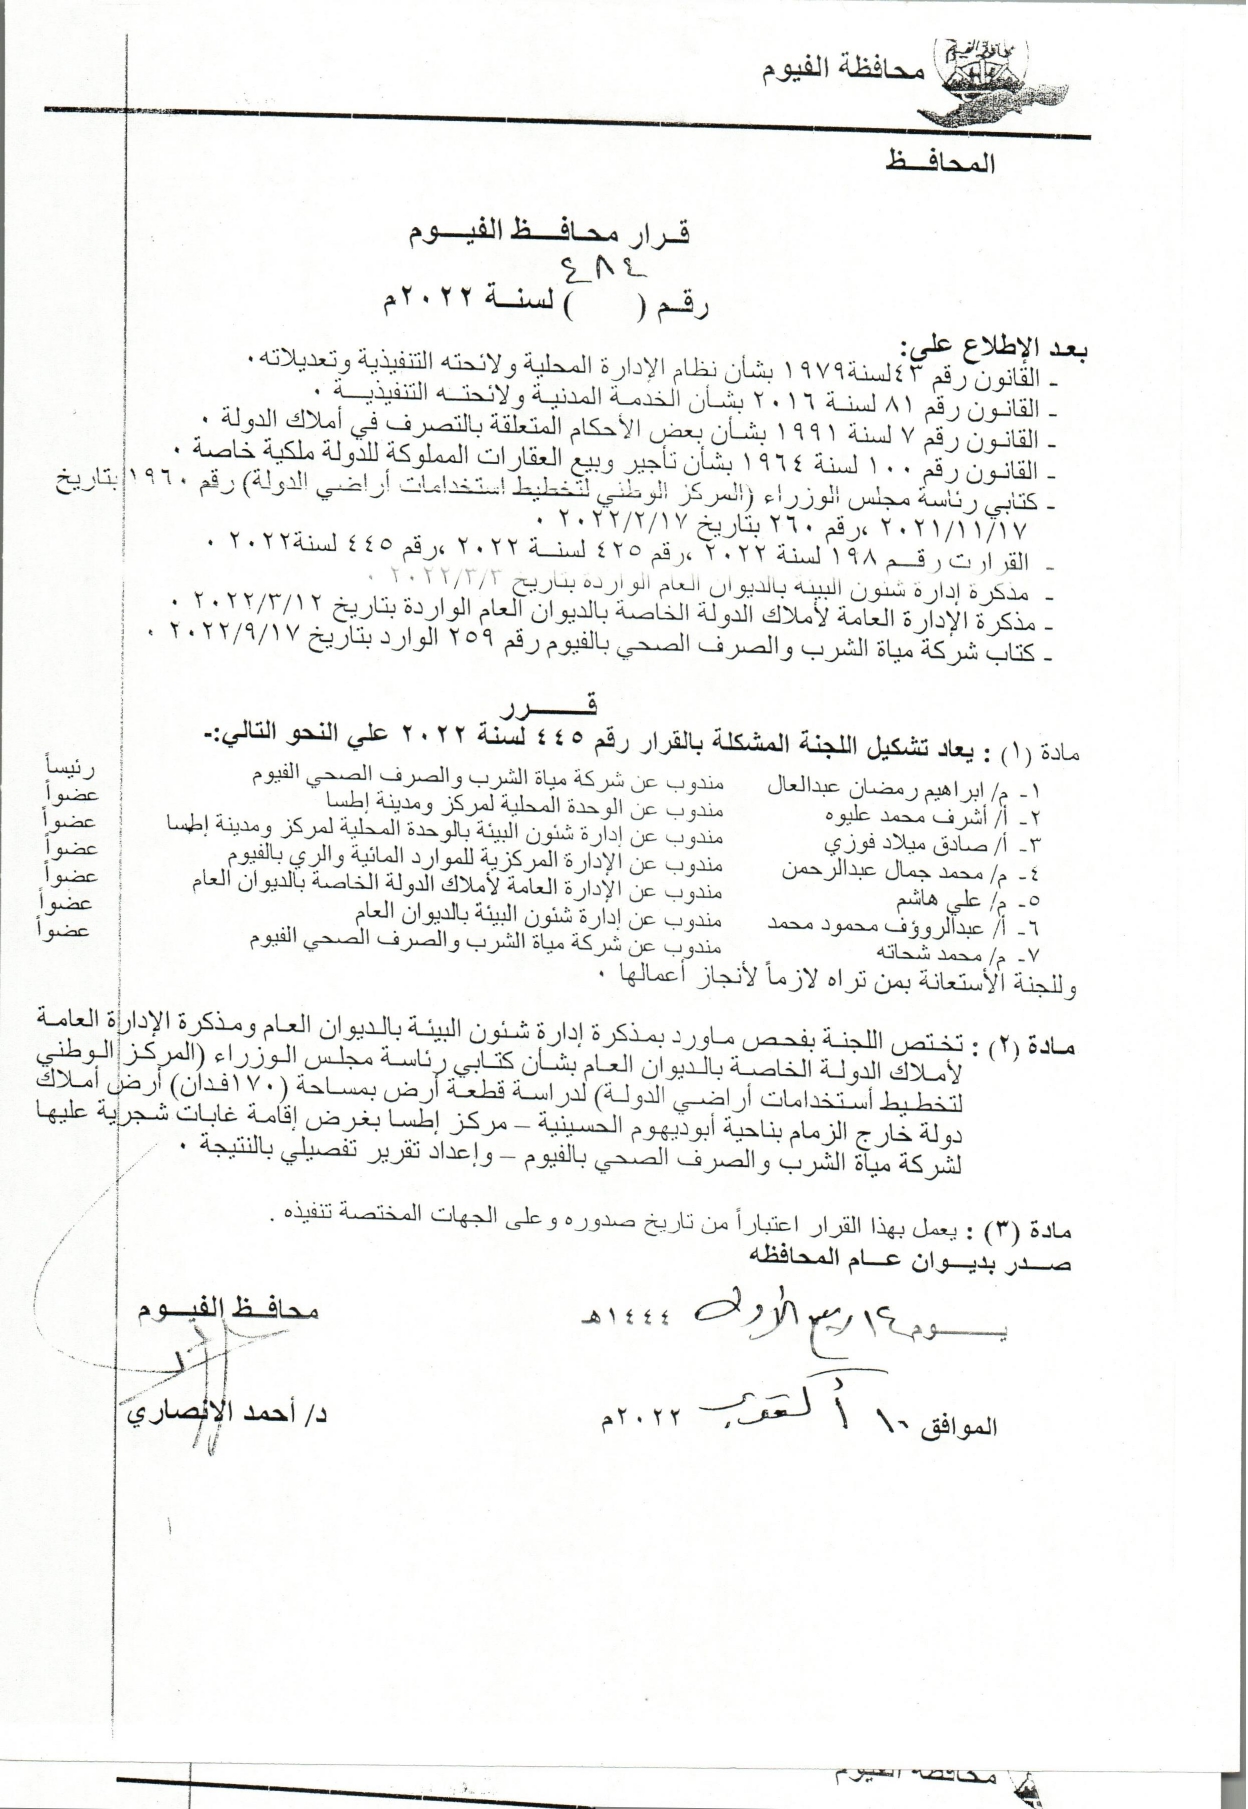 محافظة الفيوم
محافظة الفيوم
المحافــظ
قـرار محافــظ الفيــوم
٤٨٤
رقـم ( ) لسنــة ٢٠٢٢م
بعد الإطلاع علي:
ـ القانون رقم ٤٣لسنة١٩٧٩ بشأن نظام الإدارة المحلية ولائحته التنفيذية وتعديلاته.
ـ القانـون رقـم ٨١ لسنـة ٢٠١٦ بشـأن الخدمـة المدنيـة ولائحتـه التنفيذيـة .
ـ القانـون رقـم ٧ لسنة ١٩٩١ بشـأن بعض الأحكام المتعلقة بالتصرف في أملاك الدولة .
ـ القانون رقم ١٠٠ لسنة ١٩٦٤ بشأن تأجير وبيع العقارات المملوكة للدولة ملكية خاصة .
ـ كتابي رئاسة مجلس الوزراء (المركز الوطني لتخطيط استخدامات أراضي الدولة) رقم ١٩٦٠ بتاريخ
٢٠٢١/١١/١٧ ،رقم ٢٦٠ بتاريخ ٢٠٢٢/٢/١٧ .
ـ القرارت رقـم ١٩٨ لسنة ٢٠٢٢ ،رقم ٤٢٥ لسنـة ٢٠٢٢ ،رقم ٤٤٥ لسنة٢٠٢٢ .
ـ مذكرة إدارة شئون البيئة بالديوان العام الواردة بتاريخ ٢٠٢٢/٣/٣ .
ـ مذكرة الإدارة العامة لأملاك الدولة الخاصة بالديوان العام الواردة بتاريخ ٢٠٢٢/٣/١٢ .
ـ كتاب شركة مياة الشرب والصرف الصحي بالفيوم رقم ٢٥٩ الوارد بتاريخ ٢٠٢٢/٩/١٧ .
قــــرر
مادة (١) : يعاد تشكيل اللجنة المشكلة بالقرار رقم ٤٤٥ لسنة ٢٠٢٢ علي النحو التالي:-
١- م/ ابراهيم رمضان عبدالعال مندوب عن شركة مياة الشرب والصرف الصحي الفيوم رئيساً
٢- أ/ أشرف محمد عليوه مندوب عن الوحدة المحلية لمركز ومدينة إطسا عضواً
٣- أ/ صادق ميلاد فوزي مندوب عن إدارة شئون البيئة بالوحدة المحلية لمركز ومدينة إطسا عضواً
٤- م/ محمد جمال عبدالرحمن مندوب عن الإدارة المركزية للموارد المائية والري بالفيوم عضواً
٥- م/ علي هاشم مندوب عن الإدارة العامة لأملاك الدولة الخاصة بالديوان العام عضواً
٦- أ/ عبدالروؤف محمود محمد مندوب عن إدارة شئون البيئة بالديوان العام عضواً
٧- م/ محمد شحاته مندوب عن شركة مياة الشرب والصرف الصحي الفيوم عضواً
وللجنة الأستعانة بمن تراه لازماً لأنجاز أعمالها .
مـادة (٢) : تختص اللجنة بفحص ماورد بمذكرة إدارة شئون البيئة بالديوان العام ومذكرة الإدارة العامة
لأملاك الدولة الخاصة بالديوان العام بشأن كتابي رئاسة مجلس الوزراء (المركز الوطني
لتخطيط أستخدامات أراضي الدولة) لدراسة قطعة أرض بمساحة (١٧٠فدان) أرض أملاك
دولة خارج الزمام بناحية أبوديهوم الحسينية – مركز إطسا بغرض إقامة غابات شجراية عليها
لشركة مياة الشرب والصرف الصحي بالفيوم – وإعداد تقرير تفصيلي بالنتيجة .
مادة (٣) : يعمل بهذا القرار اعتباراً من تاريخ صدوره وعلى الجهات المختصة تنفيذه .
صـدر بديـوان عـام المحافظه
يــــوم ١٤ ربيع الأول ١٤٤٤هـ
محافـظ الفيـوم
الموافق ١٠ أكتوبر ٢٠٢٢م
د/ أحمد الانصاري
محافظة الفيوم